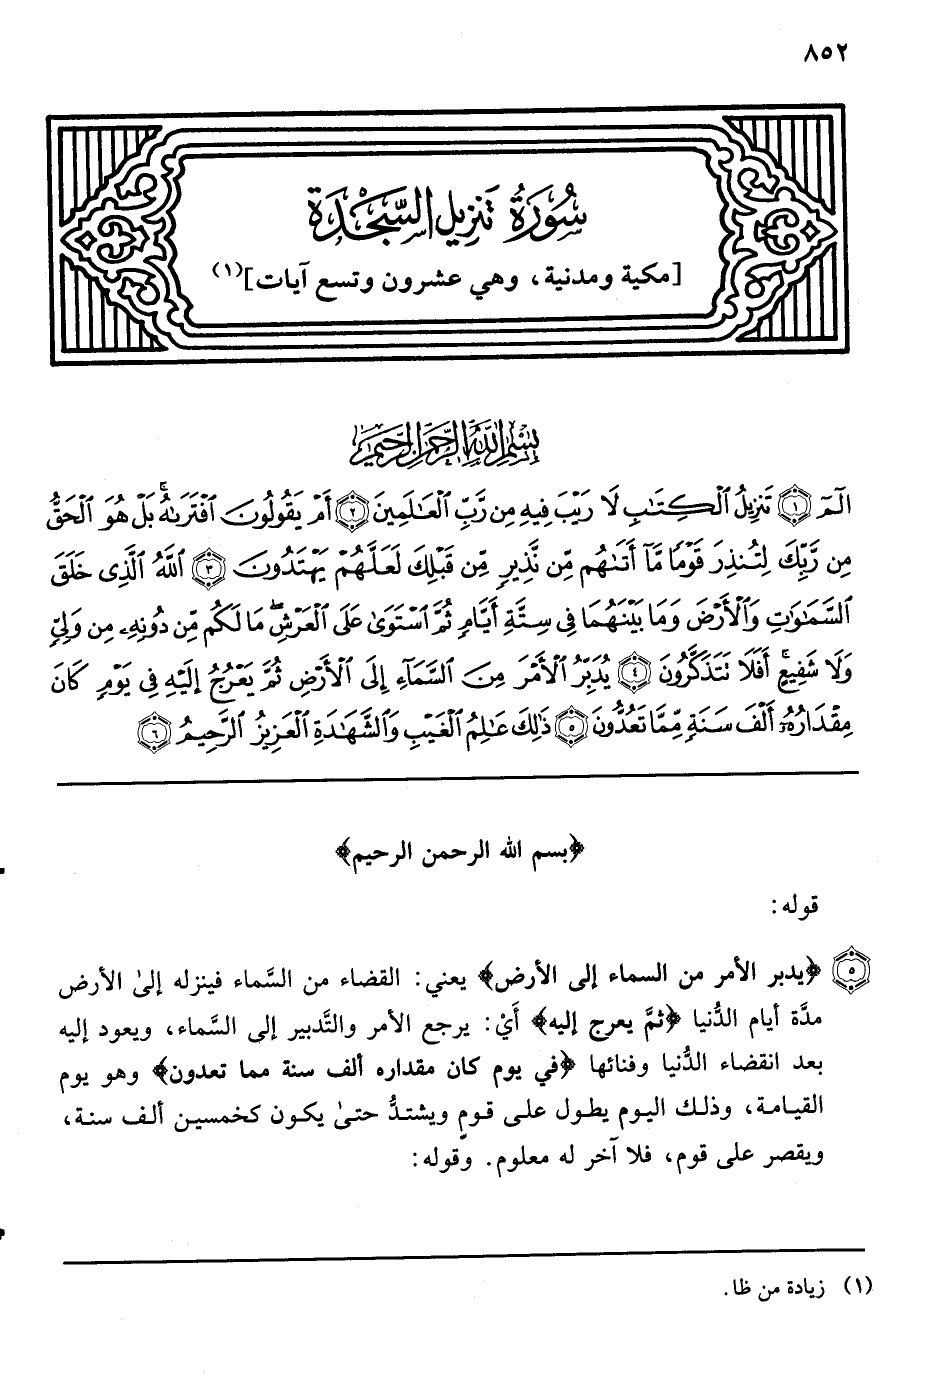 ٨٥٢
سُورَةُ تَنزِيل السَّجْدَة
[مكية ومدنية، وهي عشرون وتسع آيات](١)
بِسْمِ ٱللَّهِ ٱلرَّحْمَٰنِ ٱلرَّحِيمِ
الٓمٓ ۝١ تَنزِيلُ ٱلْكِتَٰبِ لَا رَيْبَ فِيهِ مِن رَّبِّ ٱلْعَٰلَمِينَ ۝٢ أَمْ يَقُولُونَ ٱفْتَرَىٰهُ ۚ بَلْ هُوَ ٱلْحَقُّ
مِن رَّبِّكَ لِتُنذِرَ قَوْمًا مَّآ أَتَىٰهُم مِّن نَّذِيرٍ مِّن قَبْلِكَ لَعَلَّهُمْ يَهْتَدُونَ ۝٣ ٱللَّهُ ٱلَّذِى خَلَقَ
ٱلسَّمَٰوَٰتِ وَٱلْأَرْضَ وَمَا بَيْنَهُمَا فِى سِتَّةِ أَيَّامٍ ثُمَّ ٱسْتَوَىٰ عَلَى ٱلْعَرْشِ ۖ مَا لَكُم مِّن دُونِهِۦ مِن وَلِىٍّ
وَلَا شَفِيعٍ ۚ أَفَلَا تَتَذَكَّرُونَ ۝٤ يُدَبِّرُ ٱلْأَمْرَ مِنَ ٱلسَّمَآءِ إِلَى ٱلْأَرْضِ ثُمَّ يَعْرُجُ إِلَيْهِ فِى يَوْمٍ كَانَ
مِقْدَارُهُۥٓ أَلْفَ سَنَةٍ مِّمَّا تَعُدُّونَ ۝٥ ذَٰلِكَ عَٰلِمُ ٱلْغَيْبِ وَٱلشَّهَٰدَةِ ٱلْعَزِيزُ ٱلرَّحِيمُ ۝٦
﴿بسم الله الرحمن الرحيم﴾
قوله:
۝٥ ﴿يدبر الأمر من السماء إلى الأرض﴾ يعني: القضاء من السَّماء فينزله إلىٰ الأرض
مدَّة أيام الدُّنيا ﴿ثمَّ يعرج إليه﴾ أَيْ: يرجع الأمر والتَّدبير إلى السَّماء، ويعود إليه
بعد انقضاء الدُّنيا وفنائها ﴿في يوم كان مقداره ألف سنة مما تعدون﴾ وهو يوم
القيامة، وذلك اليوم يطول على قومٍ ويشتدُّ حتىٰ يكون كخمسين ألف سنة،
ويقصر على قوم، فلا آخر له معلوم. وقوله:
(١) زيادة من ظا.